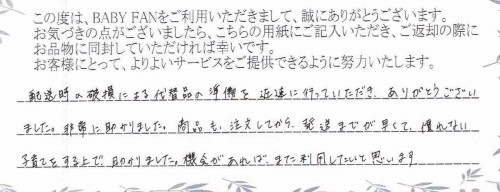 この度は、BABY FANをご利用いただきまして、誠にありがとうございます。
お気づきの点がございましたら、こちらの用紙にご記入いただき、ご返却の際に
お品物に同封していただければ幸いです。
お客様にとって、よりよいサービスをご提供できるように努力いたします。
配送時の破損による代替品の準備を迅速に行っていただき、ありがとうござい
ました。非常に助かりました。商品も、注文してから、発送までが早くて、慣れない
子育てをする上で、助かりました。機会があれば、また利用したいと思います